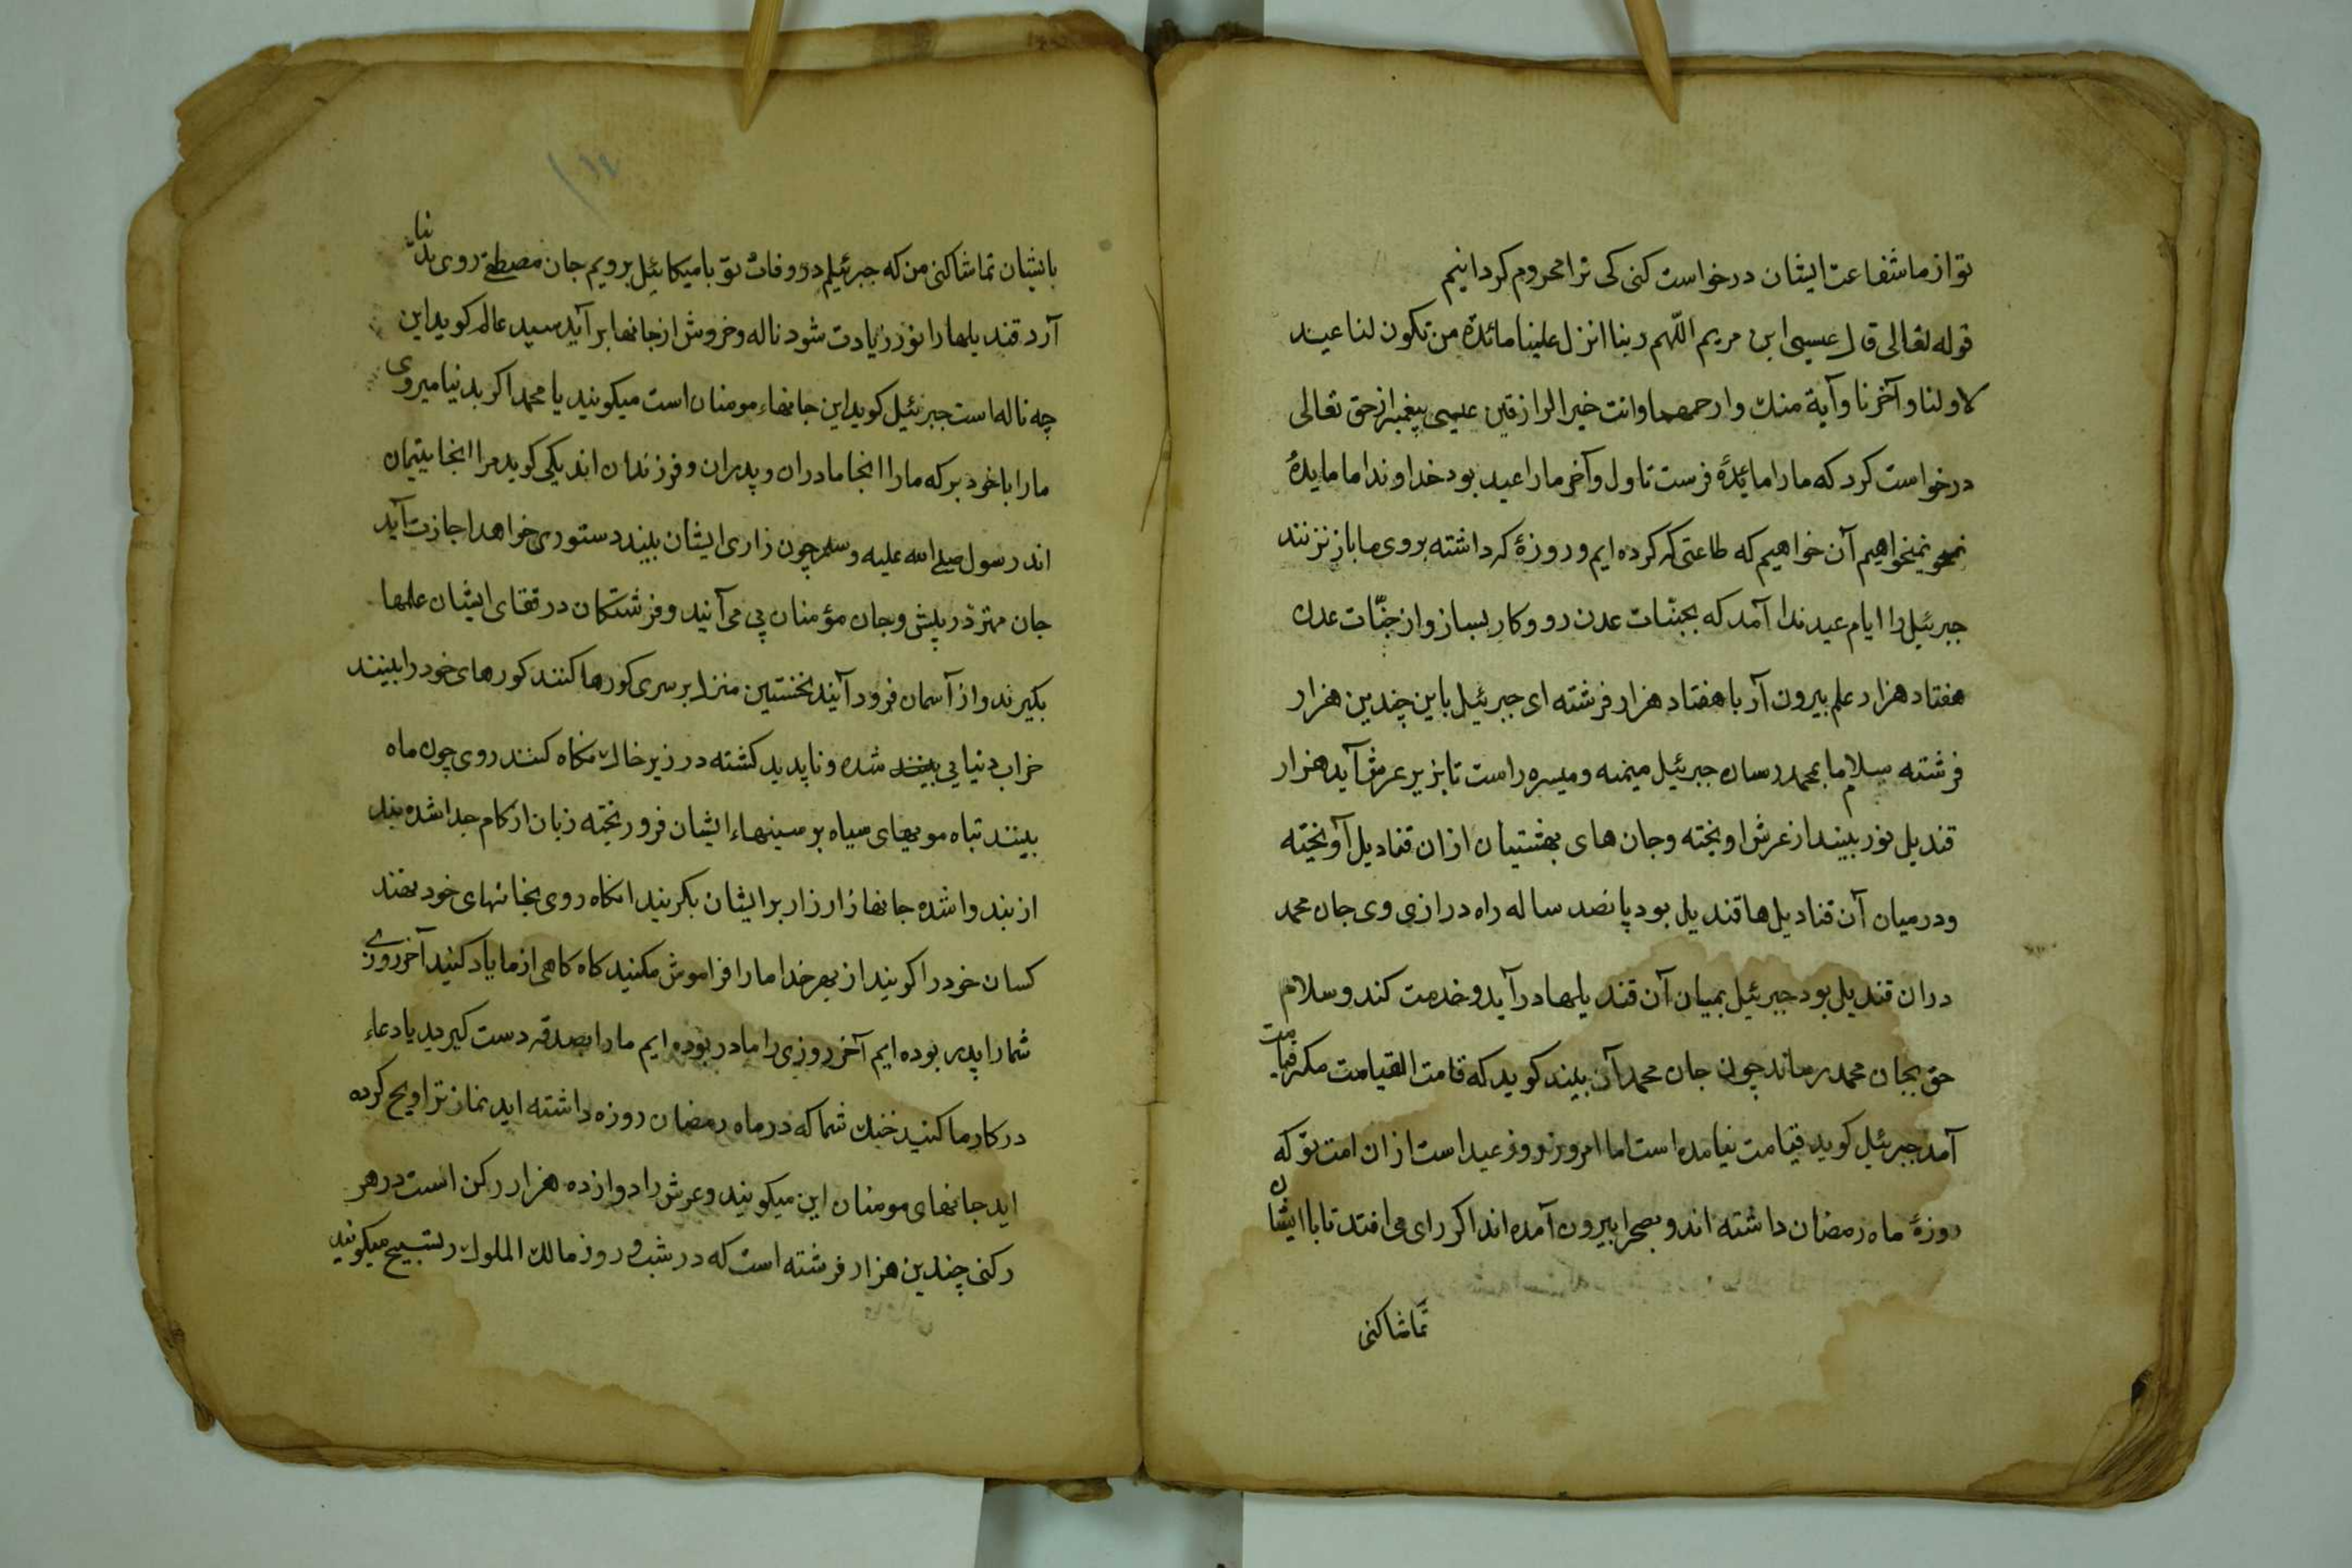 تو از ما شفاعت ایشان درخواست کنی کی ترا محروم کردانیم
قوله تعالی قال عیسی ابن مریم اللّهم ربنا انزل علینا مائدة من تکون لنا عیند
لاولنا و آخرنا وآیة منك وارحمهما وانت خیر الرازقین عیسی پیغمبر از حق تعالی
درخواست کرد که ما را مائدهٔ فرست تا اول و آخر ما را عید بود خداوندا ما مایدهٔ
نمیخواهیم آن خواهیم که طاعتی که کرده ایم و روزهٔ که داشته بروی ما باز نزنند
جبرئیل را ایام عید ندا آمد که بجنّات عدن رو و کار بساز و از جنّات عدن
هفتاد هزار علم بیرون آر با هفتاد هزار فرشته ای جبرئیل باین چندین هزار
فرشته سلام ما بمحمد رسان جبرئیل میمنه و میسره راست تا بزیر عرش آید هزار
قندیل نور بیند از عرش اویخته و جان های بهشتیان ازان قنادیل آویخته
و در میان آن قنادیل ها قندیل بود پانصد ساله راه درازی وی جان محمد
دران قندیل بود جبرئیل بمیان آن قندیلها درآید و خدمت کند و سلام
حق بجان محمد رساند چون جان محمد آن بیند کوید که قامت القیامت مکر قیامت
آمد جبرئیل کوید قیامت نیامده است اما امروز روز عید است ازان امت تو که
روزهٔ ماه رمضان داشته اند و بصحرا بیرون آمده اند اکر رای می افتد تا با ایشان
تماشا کنی
بایشان تماشا کنی من که جبرئیلم در وفات تو با میکائیل برویم جان مصطفی روی بدنیا
آرد قندیلها را نور زیادت شود ناله و خروش از جانها برآید سید عالم کوید این
چه ناله است جبرئیل کوید این جانهاء مومنان است میکویند یا محمد اکر بدنیا میروی
ما را با خود بر که ما را انجا مادران و پدران و فرزندان اند یکی کوید مرا انجا یتیمان
اند رسول صلی الله علیه وسلم چون زاری ایشان بیند دستوری خواهد اجازت آید
جان مهتر در پیش و جان مؤمنان پی می آیند و فرشتکان در قفای ایشان علمها
بکیرند و از آسمان فرود آیند نخستین منزل بر سری کورها کنند کورهای خود را بینند
خراب دنیایی بینند شده و ناپدید کشته در زیر خاك نکاه کنند روی چون ماه
بینند تباه موهیای سیاه بر سینهاء ایشان فرو ریخته زبان از کام جدا شده بند
از بند وا شده جانها زار زار بر ایشان بکریند انکاه روی بخانهای خود نهند
کسان خود را کویند از بهر خدا ما را فراموش مکنید کاه کاهی از ما یاد کنید آخر روزی
شما را پدر بوده ایم آخر روزی را مادر بوده ایم ما را بصدقه دست کیرید یا دعاء
در کار ما کنید خنك شما که در ماه رمضان روزه داشته اید نماز تراویح کرده
اید جانهای مومنان این میکویند و عرش را دوازده هزار رکن است در هر
رکنی چندین هزار فرشته است که در شب و روز مالك الملوك را تسبیح میکویند